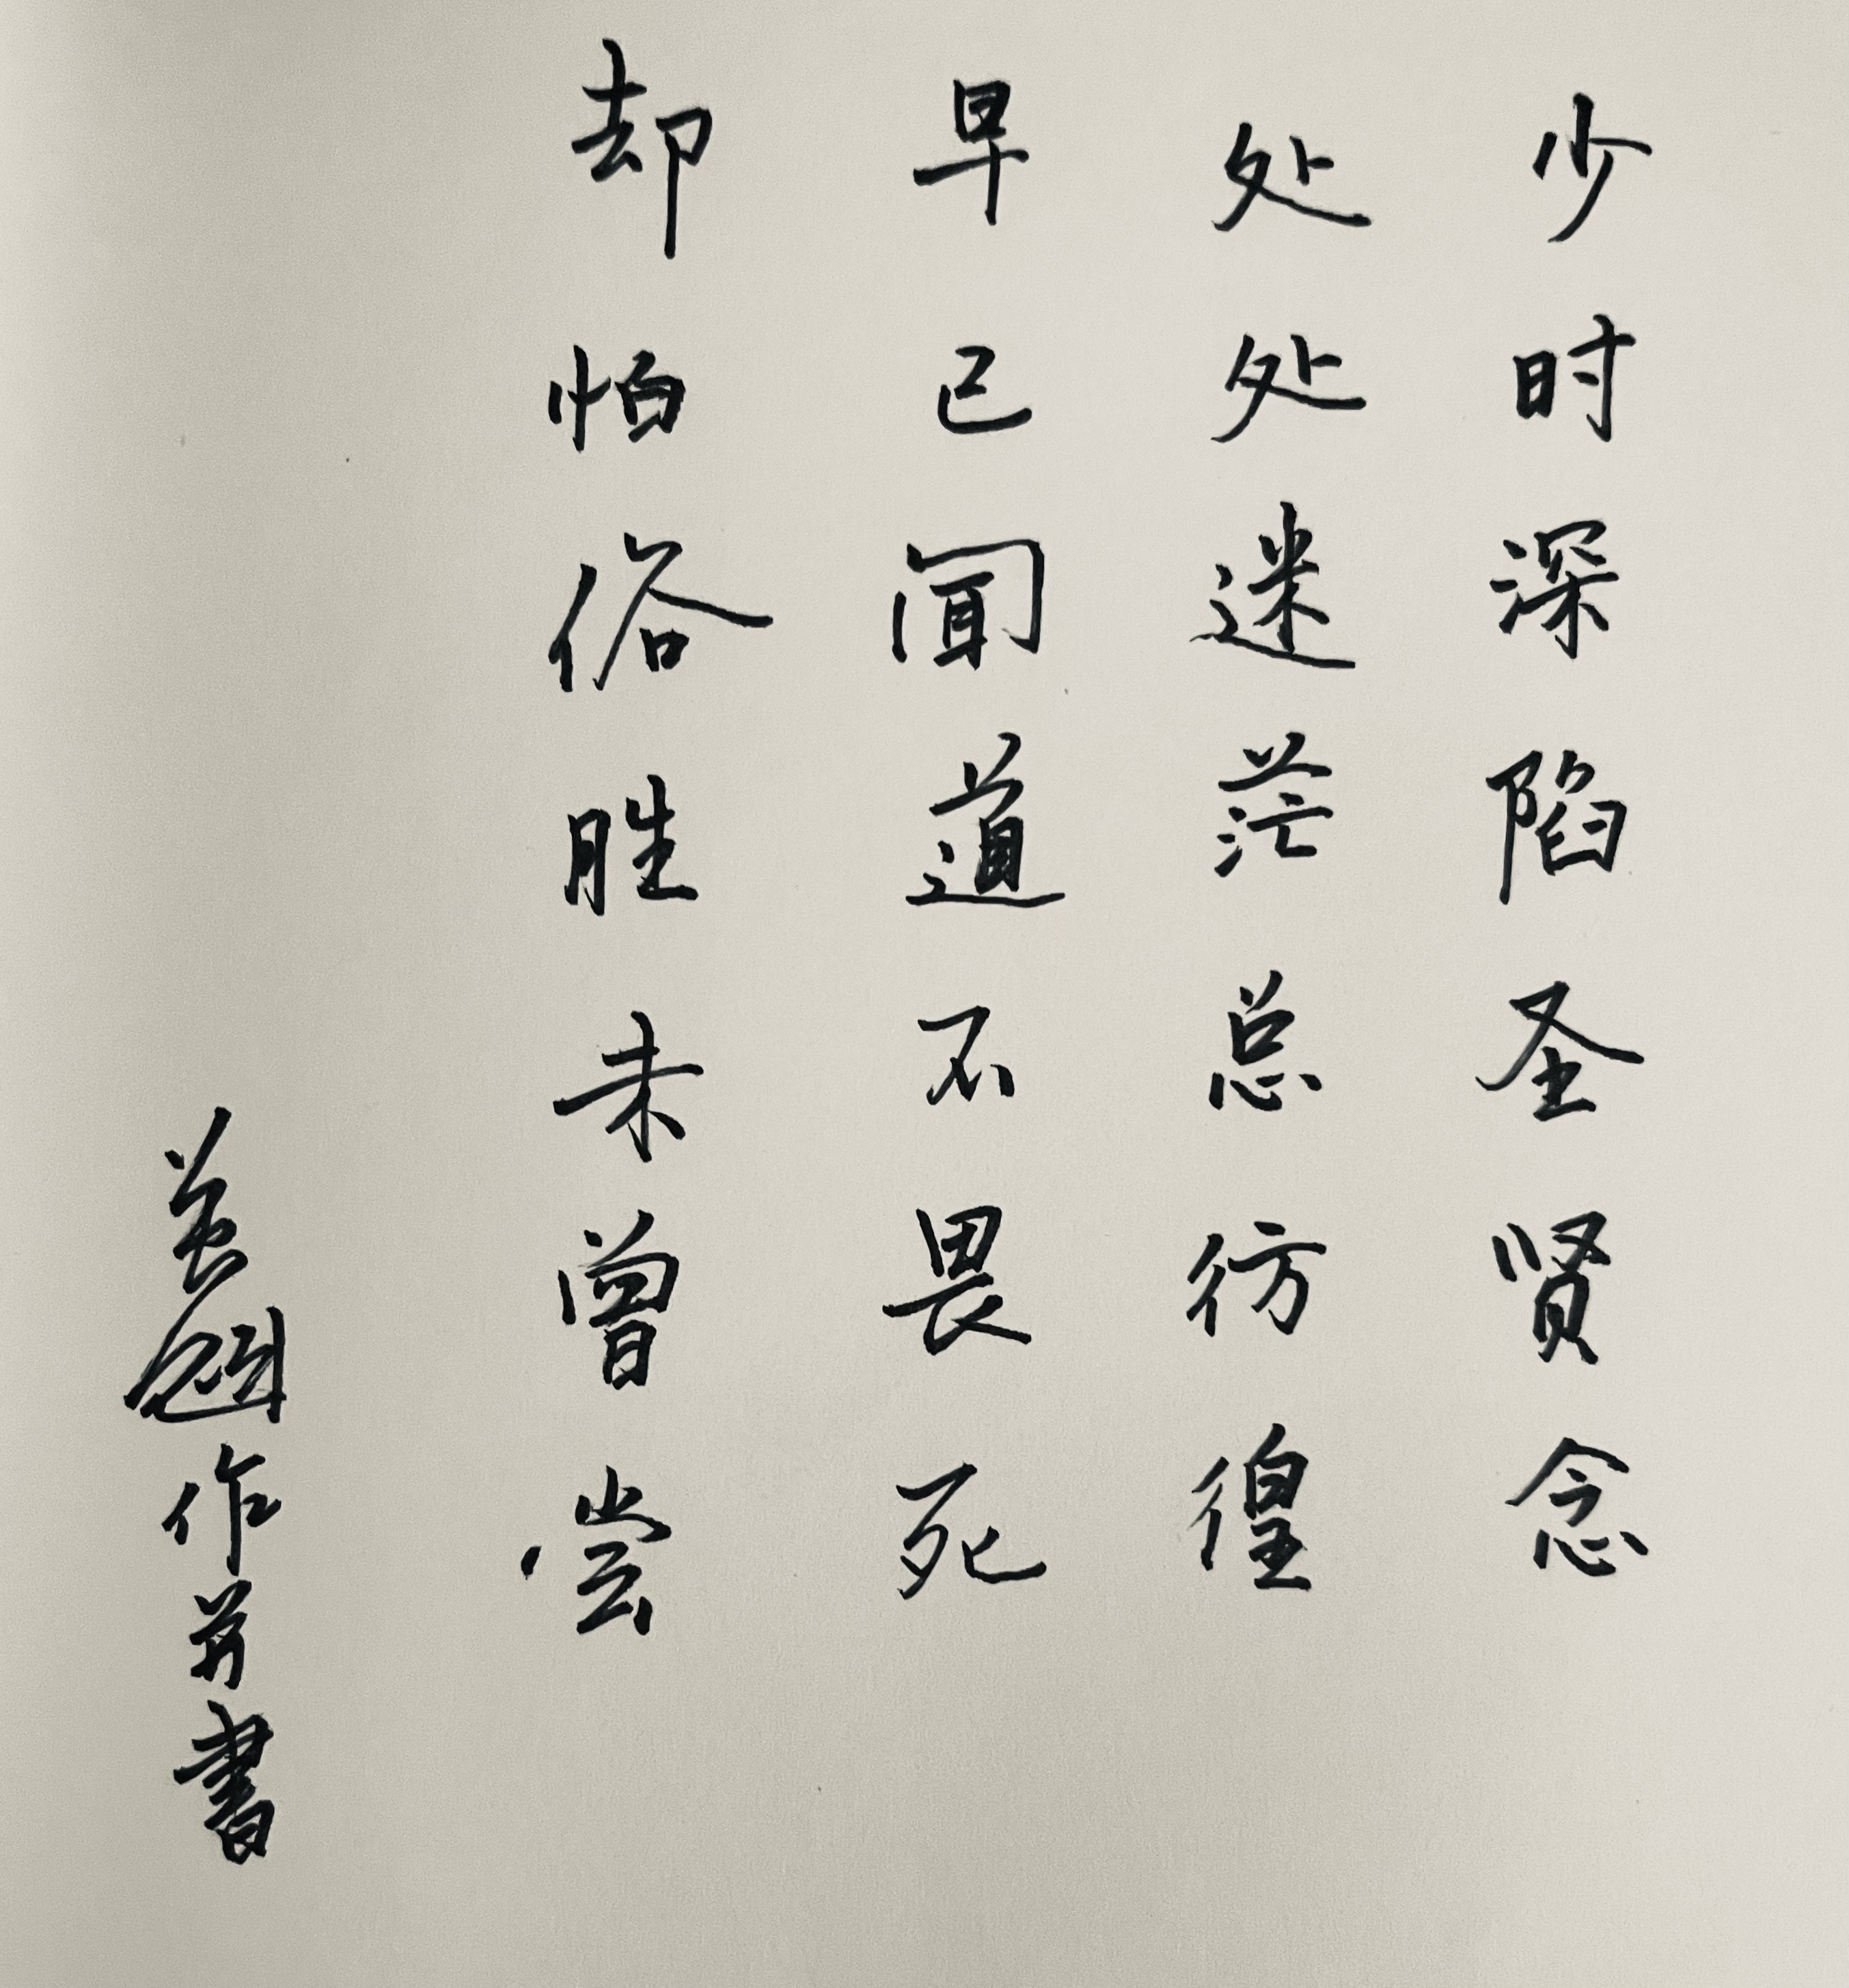 少时深陷圣贤念
处处迷茫总彷徨
早已闻道不畏死
却怕俗胜未曾尝
作并書